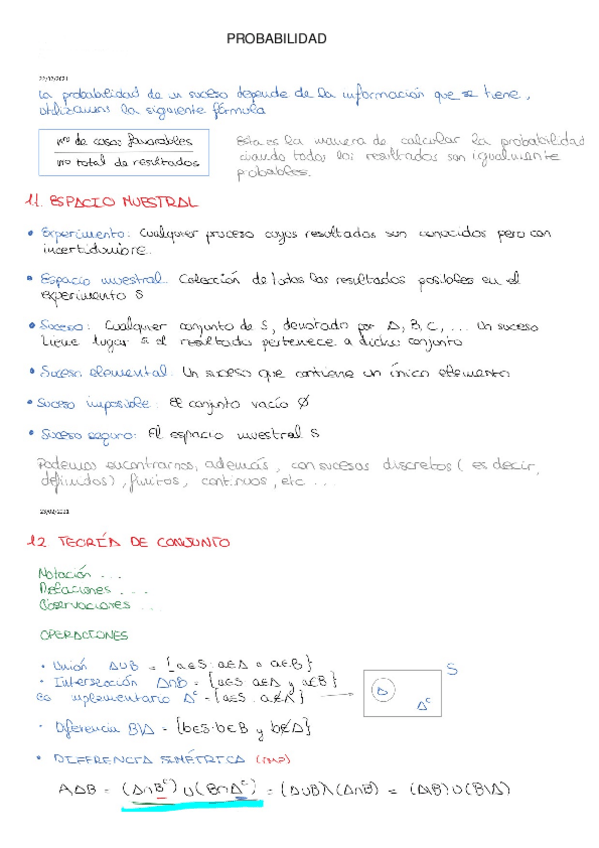 PROBABILIDAD
La probabilidad de un suceso depende de la información que se tiene,
utilizamos la siguiente fórmula
nº de casos favorables
nº total de resultados
Esta es la manera de calcular la probabilidad
cuando todos los resultados son igualmente
probables.
1.1. ESPACIO MUESTRAL
• Experimento: Cualquier proceso cuyos resultados son conocidos pero con
incertidumbre.
• Espacio muestral. Colección de todos los resultados posibles en el
experimento S
• Suceso: Cualquier conjunto de S, denotado por A, B, C, ... Un suceso
tiene lugar si el resultado pertenece a dicho conjunto
• Suceso elemental: Un suceso que contiene un único elemento
• Suceso imposible: El conjunto vacío Ø
• Suceso seguro: El espacio muestral S
Podemos encontrarnos, además, con sucesos discretos (es decir,
definidos), finitos, continuos, etc ...
1.2 TEORÍA DE CONJUNTO
Notación ...
Relaciones ...
Observaciones ...
OPERACIONES
• Unión A∪B = {a∈S: a∈A o a∈B}
• Intersección A∩B = {a∈S a∈A y a∈B}
Complementario Aᶜ = {a∈S. a∉A}
S
A
Aᶜ
• Diferencia B\A = {b∈S: b∈B y b∉A}
• DIFERENCIA SIMÉTRICA
AΔB = (A∩Bᶜ) ∪ (B∩Aᶜ) = (A∪B)\(A∩B) = (A\B)∪(B\A)